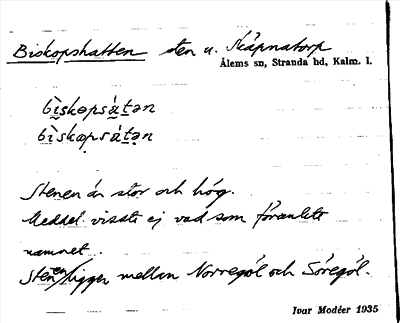 Biskopshatten sten u. Skäpnatorp
Ålems sn, Stranda hd, Kalm. l.
bìskɷpsátən
bìskɷpsátən
Stenen är stor och hög.
Meddel. visste ej vad som föranlett
namnet.
Stenen ligger mellan Norregöl och Söregöl.
Ivar Modéer 1935